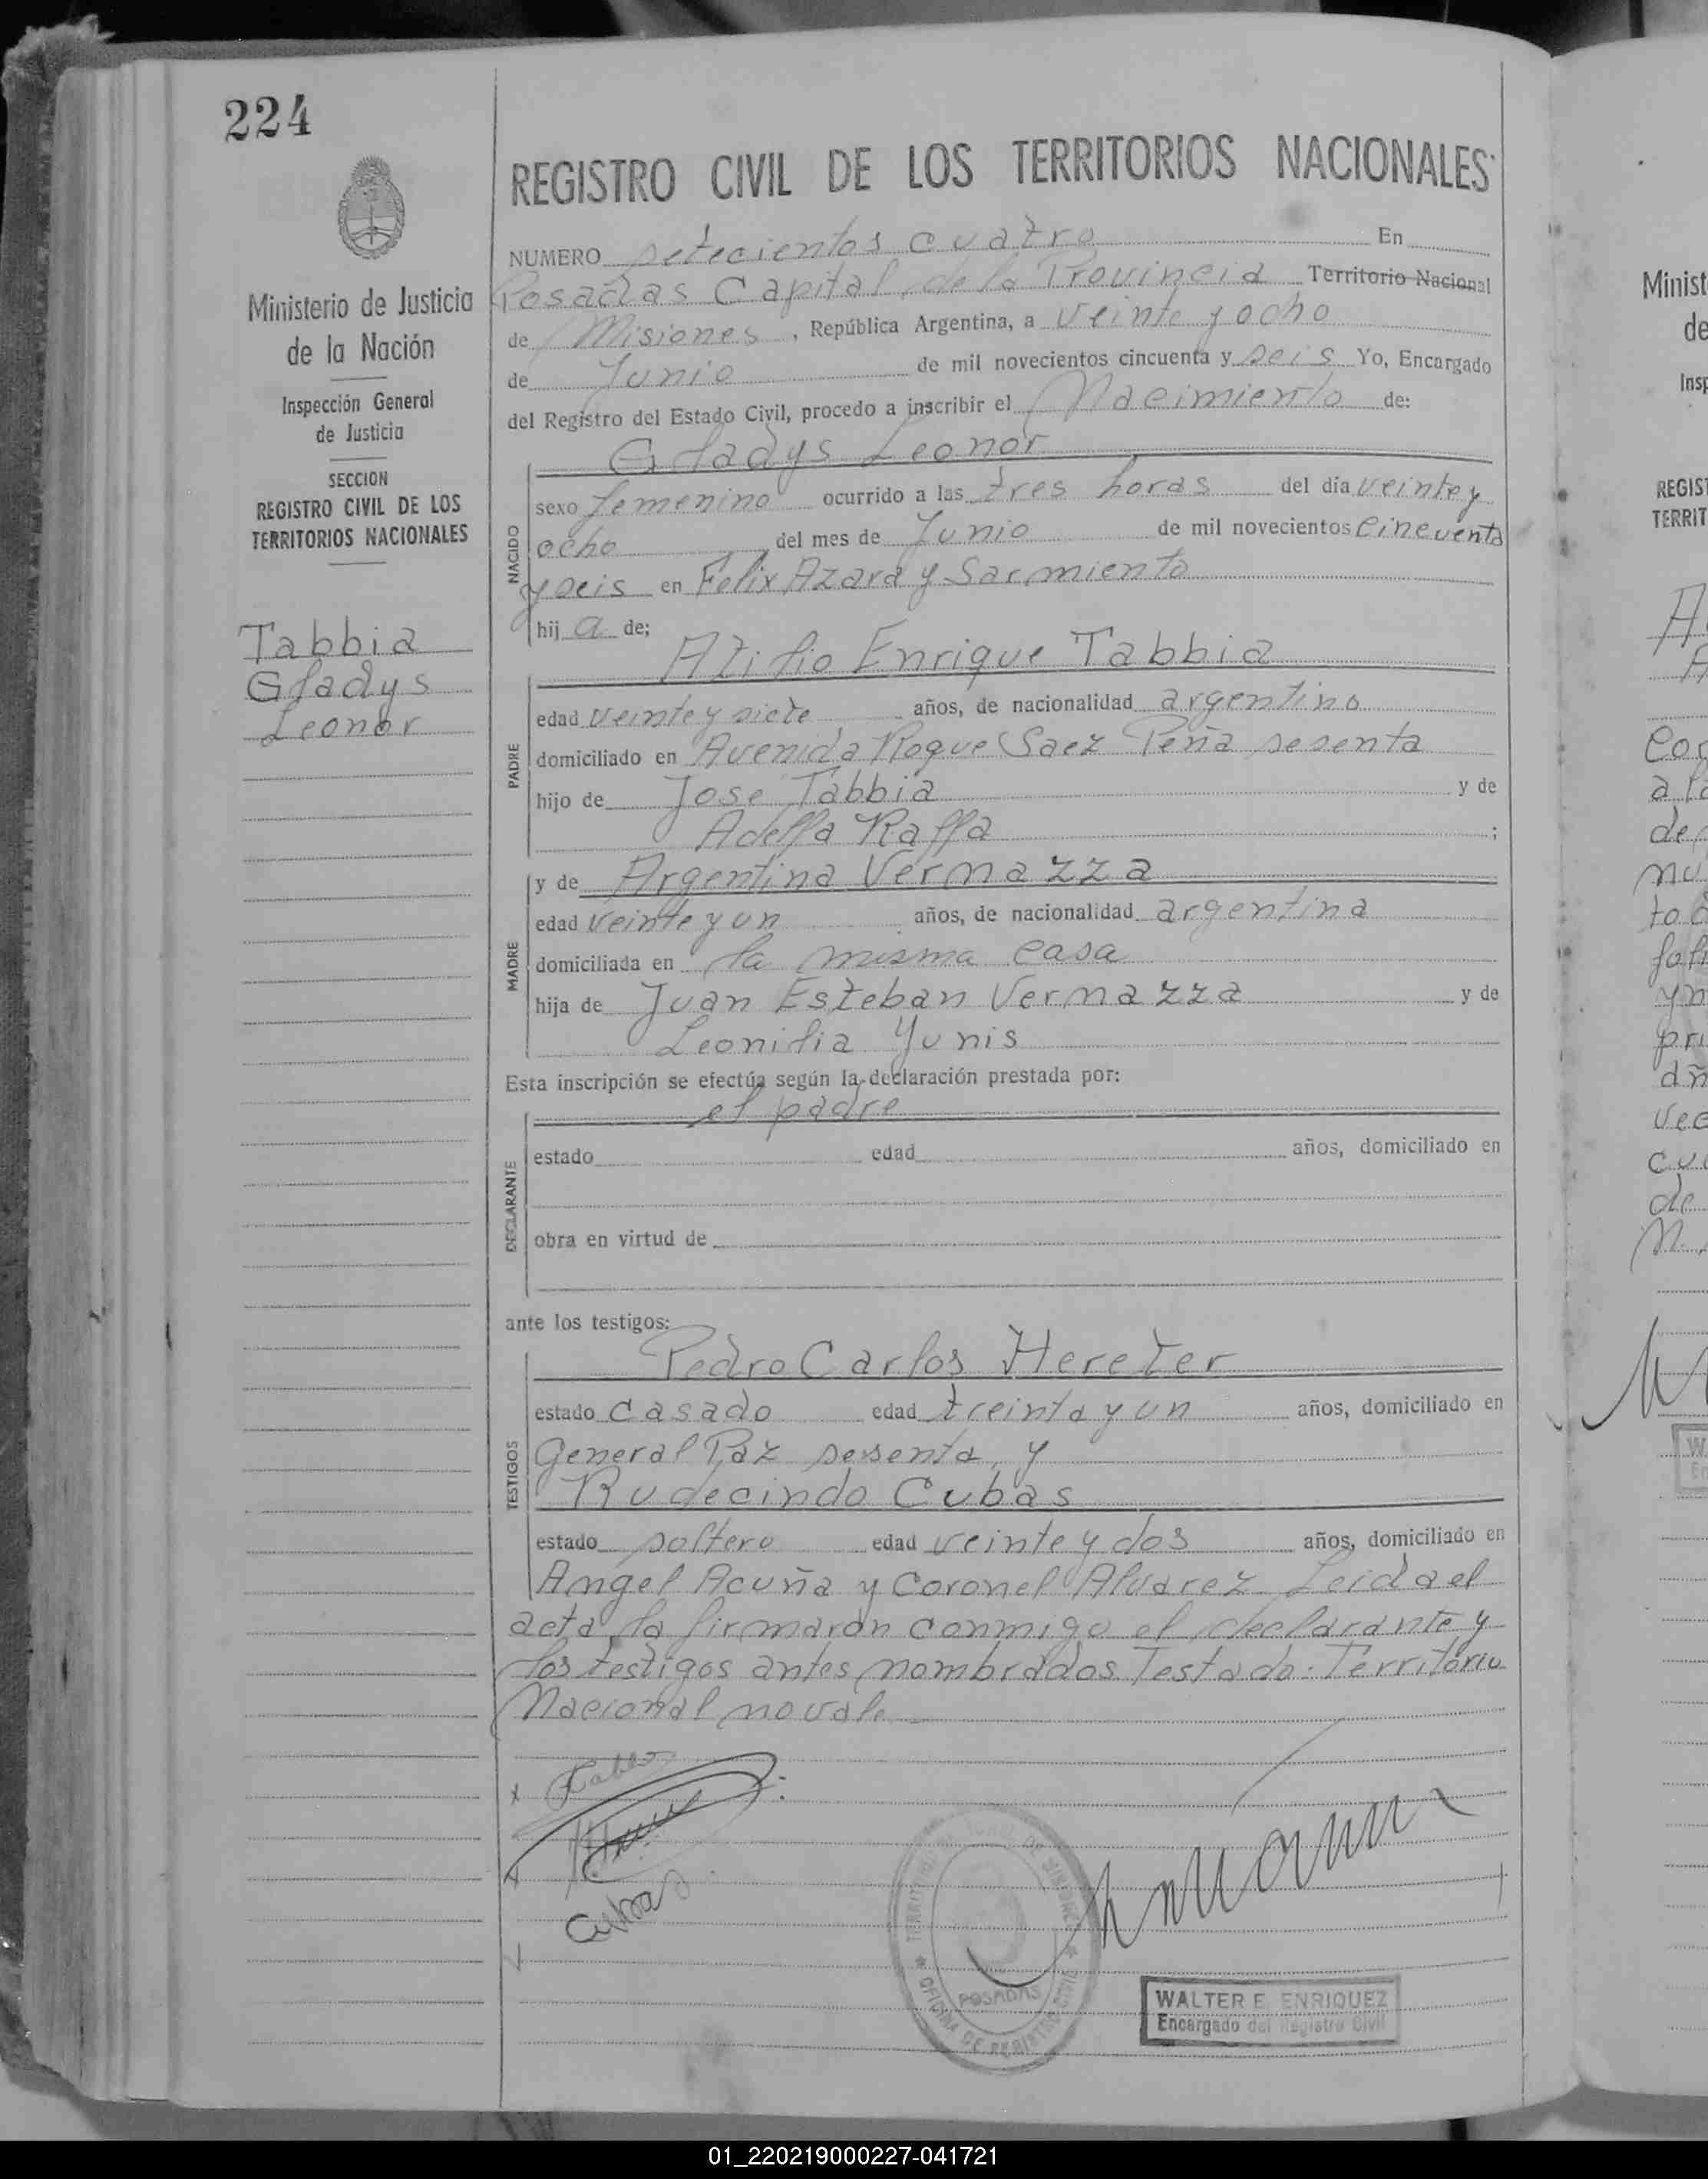 224
REGISTRO CIVIL DE LOS TERRITORIOS NACIONALES
Ministerio de Justicia
de la Nación
Inspección General
de Justicia
SECCION
REGISTRO CIVIL DE LOS
TERRITORIOS NACIONALES
Tabbia
Gladys
Leonor
NUMERO setecientos cuatro En
Posadas Capital de la Provincia Territorio Nacional
de Misiones, República Argentina, a veinte y ocho
de Junio de mil novecientos cincuenta y seis Yo, Encargado
del Registro del Estado Civil, procedo a inscribir el Nacimiento de:
Gladys Leonor
NACIDO
sexo femenino ocurrido a las tres horas del día veinte y
ocho del mes de Junio de mil novecientos cincuenta
y seis en Felix Azara y Sarmiento
hij a de;
Atilio Enrique Tabbia
PADRE
edad veinte y siete años, de nacionalidad argentino
domiciliado en Avenida Roque Saez Peña sesenta
hijo de Jose Tabbia y de
Adella Raffa ;
y de Argentina Vermazza
MADRE
edad veinte y un años, de nacionalidad argentina
domiciliada en la misma casa
hija de Juan Esteban Vermazza y de
Leonilia Yunis
Esta inscripción se efectúa según la declaración prestada por:
el padre
DECLARANTE
estado edad años, domiciliado en
obra en virtud de
ante los testigos:
Pedro Carlos Hereter
TESTIGOS
estado casado edad treinta y un años, domiciliado en
General Paz sesenta, y
Rudecindo Cubas
estado soltero edad veinte y dos años, domiciliado en
Angel Acuña y Coronel Alvarez Leida el
acta la firmaran conmigo el declarante y
los testigos antes nombrados Testado: Territorio
Nacional no vale
Cubas
POSADAS
WALTER E. ENRIQUEZ
Encargado del Registro Civil
Minist
de
Insp
REGIST
TERRIT
01_220219000227-041721